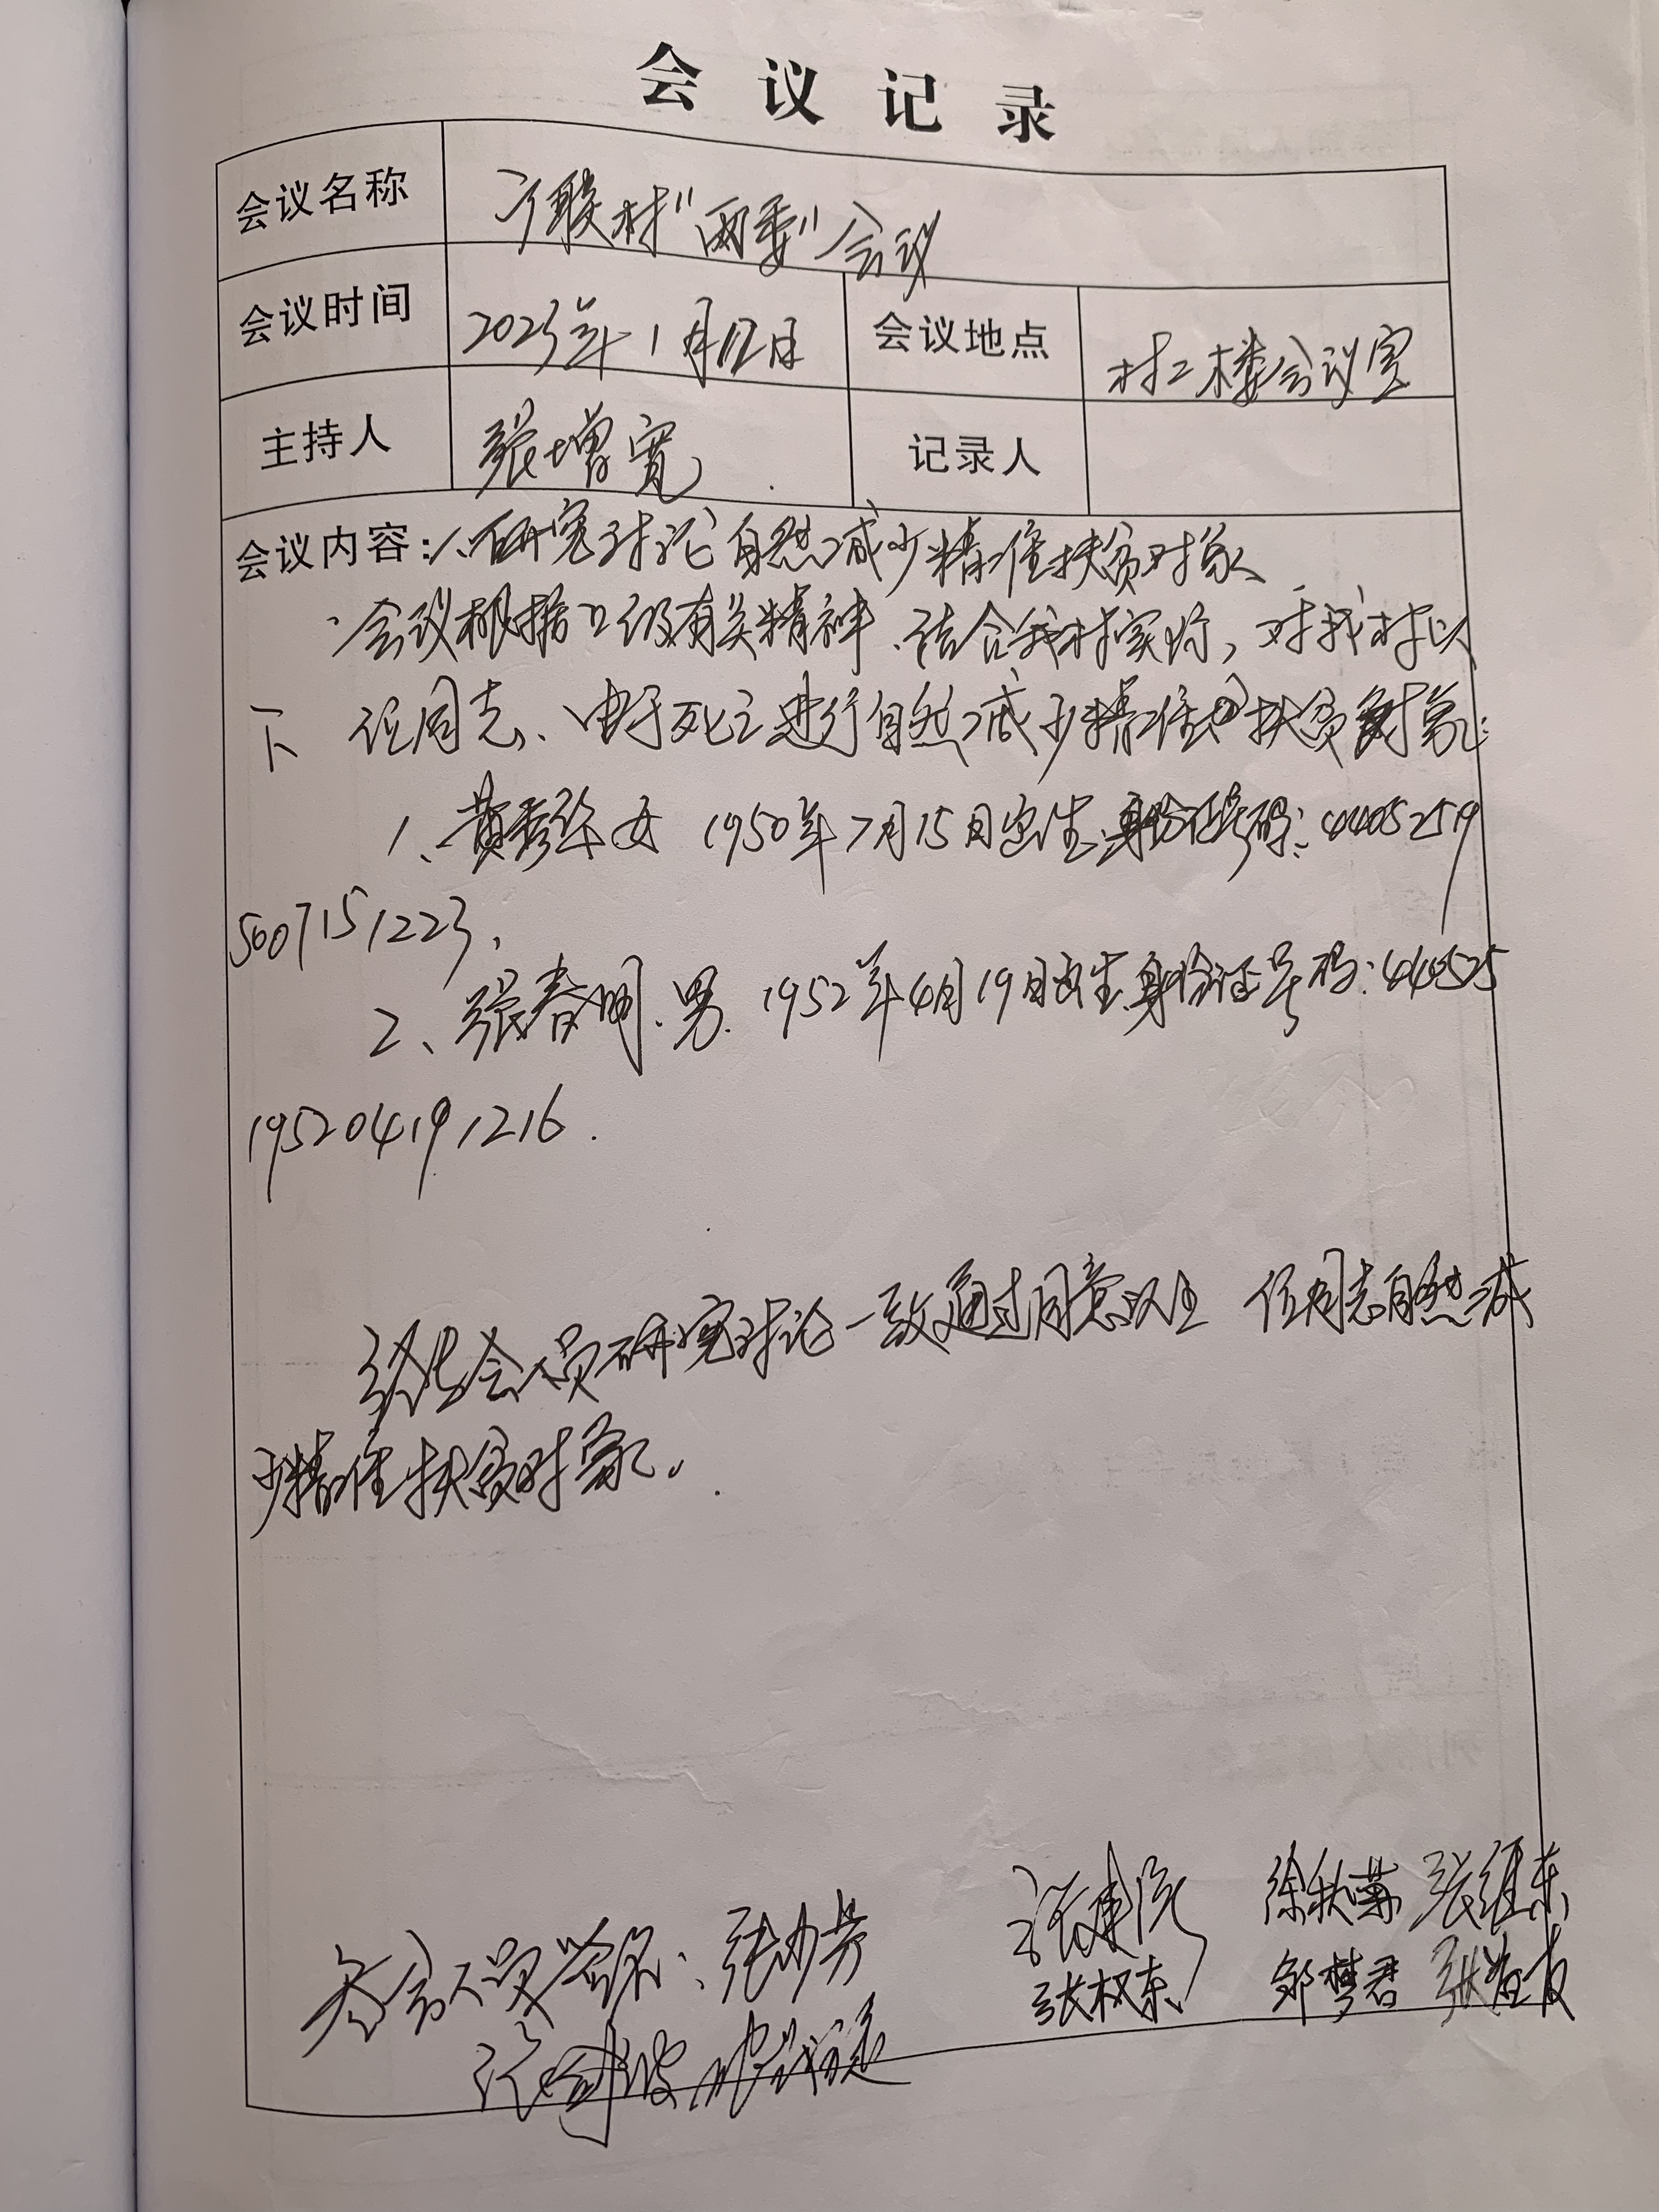 会议记录
会议名称 广联村"两委"会议
会议时间 2023年1月12日 会议地点 村二楼会议室
主持人 张增宽 记录人
会议内容：1、研究讨论自然减少精准扶贫对象
会议根据上级有关精神、结合我村实际，对我村以
下 位同志、由于死亡进行自然减少精准扶贫对象：
1、黄秀 女 1950年7月15日出生、身份证号码：44052519
5007151223、
2、张春明、男、1952年4月19日出生、身份证号码：440525
195204191216.
经与会人员研究讨论一致通过同意以上 位同志自然减
少精准扶贫对象。
徐秋菊 张继东
参会人员签名：张少芳
张权东 邹梦君